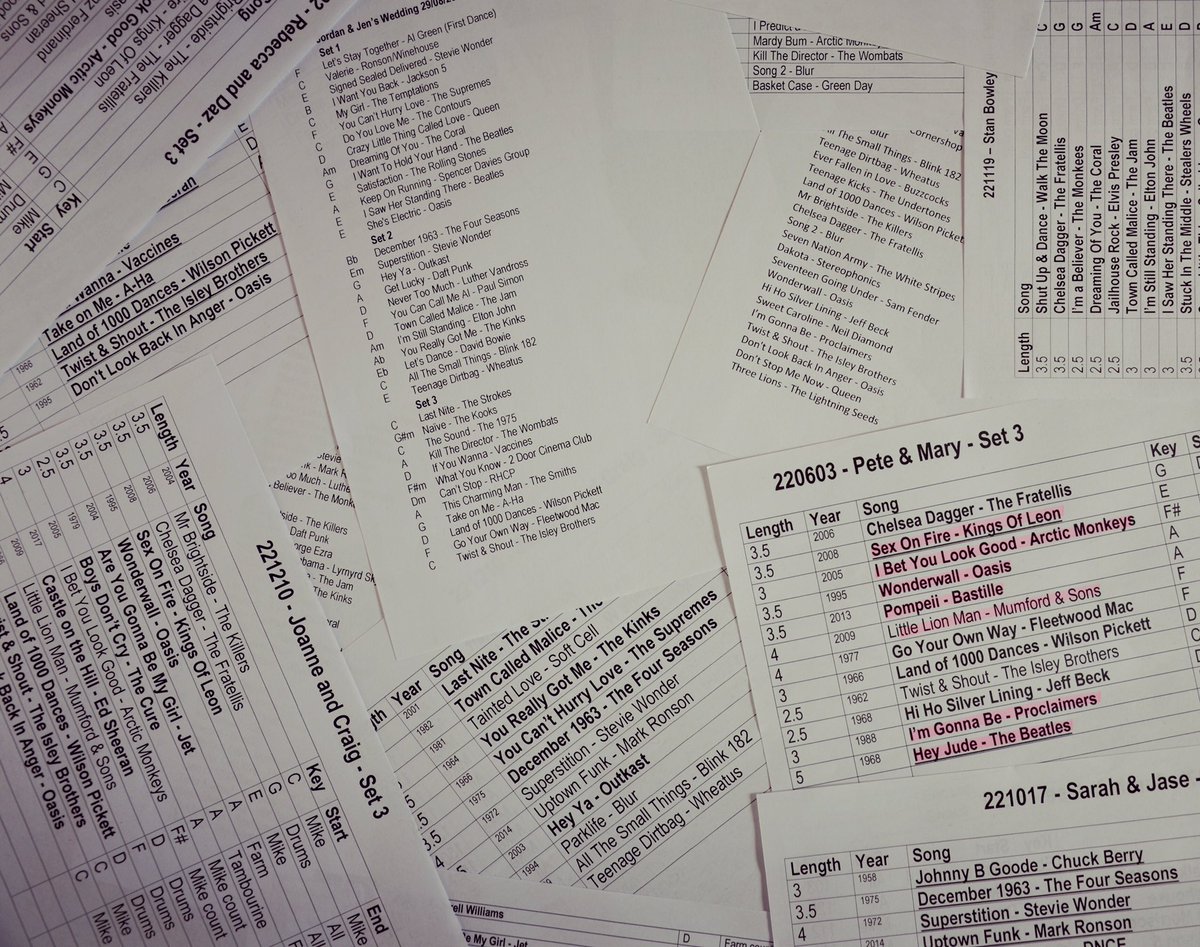 Rebecca and Daz - Set 3
- The Killers
Kings Of Leon
The Fratellis
Good - Arctic Monkeys
Key
Start
C
Mike
G
E
F#
wanna - Vaccines
Take on Me - A-Ha
Land of 1000 Dances - Wilson Pickett
Twist & Shout - The Isley Brothers
Don't Look Back In Anger - Oasis
1966
1962
1995
Jordan & Jen's Wedding
Set 1
F Let's Stay Together - Al Green (First Dance)
C Valerie - Ronson/Winehouse
E Signed Sealed Delivered - Stevie Wonder
B I Want You Back - Jackson 5
C My Girl - The Temptations
F You Can't Hurry Love - The Supremes
C Do You Love Me - The Contours
D Crazy Little Thing Called Love - Queen
Am Dreaming Of You - The Coral
G I Want To Hold Your Hand - The Beatles
E Satisfaction - The Rolling Stones
A Keep On Running - Spencer Davies Group
E I Saw Her Standing There - Beatles
E She's Electric - Oasis
Set 2
Bb December 1963 - The Four Seasons
Em Superstition - Stevie Wonder
G Hey Ya - Outkast
A Get Lucky - Daft Punk
D Never Too Much - Luther Vandross
F You Can Call Me Al - Paul Simon
D Town Called Malice - The Jam
Am I'm Still Standing - Elton John
Ab You Really Got Me - The Kinks
Eb Let's Dance - David Bowie
C All The Small Things - Blink 182
E Teenage Dirtbag - Wheatus
Set 3
C Last Nite - The Strokes
G#m Naive - The Kooks
C The Sound - The 1975
A Kill The Director - The Wombats
D If You Wanna - Vaccines
F#m What You Know - 2 Door Cinema Club
Dm Can't Stop - RHCP
A This Charming Man - The Smiths
G Take on Me - A-Ha
D Land of 1000 Dances - Wilson Pickett
F Go Your Own Way - Fleetwood Mac
C Twist & Shout - The Isley Brothers
I Predict
Mardy Bum - Arctic Monkeys
Kill The Director - The Wombats
Song 2 - Blur
Basket Case - Green Day
Blur
Cornershop
The Small Things - Blink 182
Teenage Dirtbag - Wheatus
Ever Fallen in Love - Buzzcocks
Teenage Kicks - The Undertones
Land of 1000 Dances - Wilson Picket
Mr Brightside - The Killers
Chelsea Dagger - The Fratellis
Song 2 - Blur
Seven Nation Army - The White Stripes
Dakota - Stereophonics
Seventeen Going Under - Sam Fender
Wonderwall - Oasis
Hi Ho Silver Lining - Jeff Beck
Sweet Caroline - Neil Diamond
I'm Gonna Be - Proclaimers
Twist & Shout - The Isley Brothers
Don't Look Back In Anger - Oasis
Don't Stop Me Now - Queen
Three Lions - The Lightning Seeds
221119 – Stan Bowley
Length Song
3.5 Shut Up & Dance - Walk The Moon C
3.5 Chelsea Dagger - The Fratellis G
2.5 I'm a Believer - The Monkees G
2.5 Dreaming Of You - The Coral Am
2.5 Jailhouse Rock - Elvis Presley C
3 Town Called Malice - The Jam D
3 I'm Still Standing - Elton John A
3 I Saw Her Standing There - The Beatles E
3.5 Stuck In The Middle - Stealers Wheels D
220603 - Pete & Mary - Set 3
Length Year Song Key
3.5 2006 Chelsea Dagger - The Fratellis G
3.5 2008 Sex On Fire - Kings Of Leon E
3 2005 I Bet You Look Good - Arctic Monkeys F#
3.5 1995 Wonderwall - Oasis A
3.5 2013 Pompeii - Bastille A
4 2009 Little Lion Man - Mumford & Sons F
4 1977 Go Your Own Way - Fleetwood Mac
3 1966 Land of 1000 Dances - Wilson Pickett
2.5 1962 Twist & Shout - The Isley Brothers
2.5 1968 Hi Ho Silver Lining - Jeff Beck
3 1988 I'm Gonna Be - Proclaimers
5 1968 Hey Jude - The Beatles
221210 - Joanne and Craig - Set 3
Length Year Song Key Start End
3.5 2004 Mr Brightside - The Killers C Mike All
3.5 2006 Chelsea Dagger - The Fratellis G Drums
3.5 2008 Sex On Fire - Kings Of Leon E Mike
3.5 1995 Wonderwall - Oasis A Farm
3.5 2004 Are You Gonna Be My Girl - Jet A Tambourine
2.5 1979 Boys Don't Cry - The Cure A Mike count
3 2005 I Bet You Look Good - Arctic Monkeys F# Mike count
4 2017 Castle on the Hill - Ed Sheeran D Drums
2009 Little Lion Man - Mumford & Sons F Drums
Land of 1000 Dances - Wilson Pickett D Drums
Twist & Shout - The Isley Brothers C Mike
Back In Anger - Oasis C Mike
Believer - The Monk
- The Killers
Daft Punk
George Ezra
- Lynyrd
- The Jam
The Kinks
Year Song
2001 Last Nite - The
1982 Town Called Malice - The
1981 Tainted Love - Soft Cell
1964 You Really Got Me - The Kinks
1966 You Can't Hurry Love - The Supremes
1975 December 1963 - The Four Seasons
1972 Superstition - Stevie Wonder
2014 Uptown Funk - Mark Ronson
2003 Hey Ya - Outkast
1994 Parklife - Blur
All The Small Things - Blink 182
Teenage Dirtbag - Wheatus
221017 - Sarah & Jase
Length Year Song
3 1958 Johnny B Goode - Chuck Berry
3.5 1975 December 1963 - The Four Seasons
4 1972 Superstition - Stevie Wonder
2014 Uptown Funk - Mark Ronson
DNCE
Williams
My Girl - Jet
D
Farm